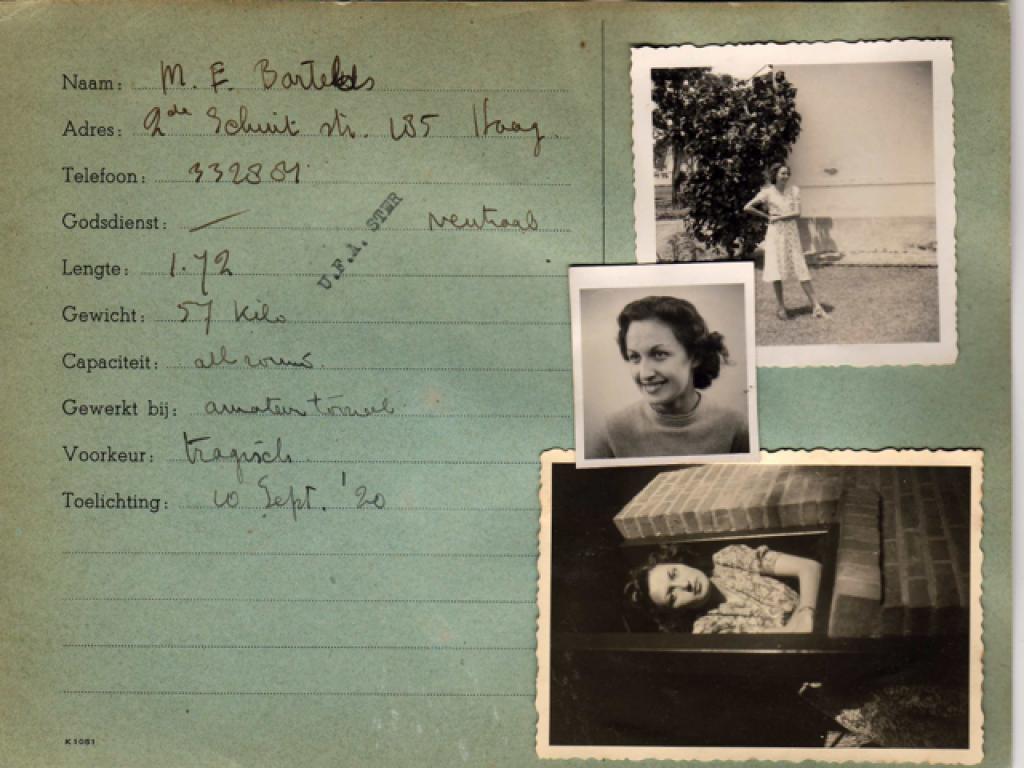 Naam: M. E. Bartelds
Adres: 2de Schuit str. 185 Haag.
Telefoon: 332881
Godsdienst: — neutraal
U.F.A. STER
Lengte: 1.72
Gewicht: 57 Kilo
Capaciteit: all round.
Gewerkt bij: amateur tooneel
Voorkeur: tragisch.
Toelichting: 10 Sept. '20
K1051